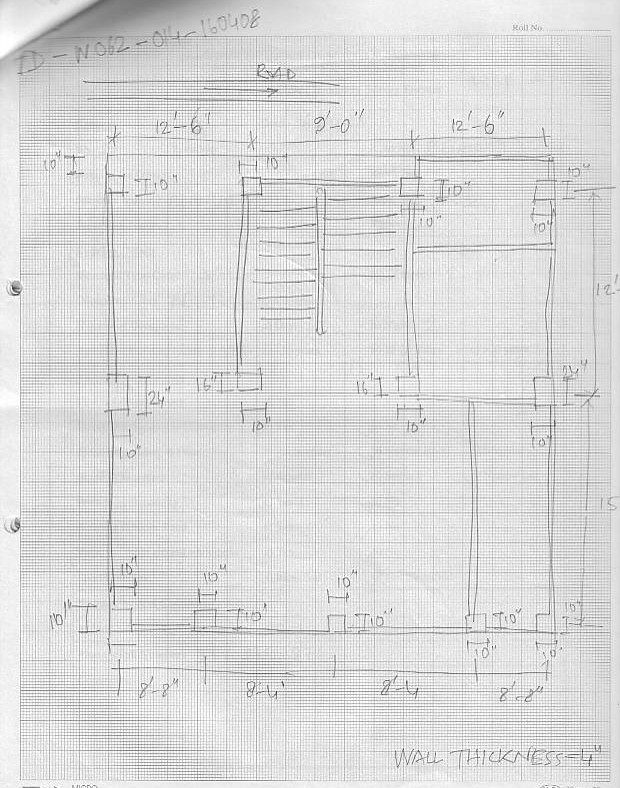 Roll No.
ID - W062 - 014 - 160408
ROAD
12'-6" 9'-0" 12'-6"
10" 10" 10"
10" 10"
10" 10"
12'-
24" 16" 16" 24"
10" 10" 10" 10"
15
10" 10" 10"
10" 10' 10" 10" 10"
10" 10"
8'-8" 8'-4' 8'-4 8'-8"
WALL THICKNESS=4"